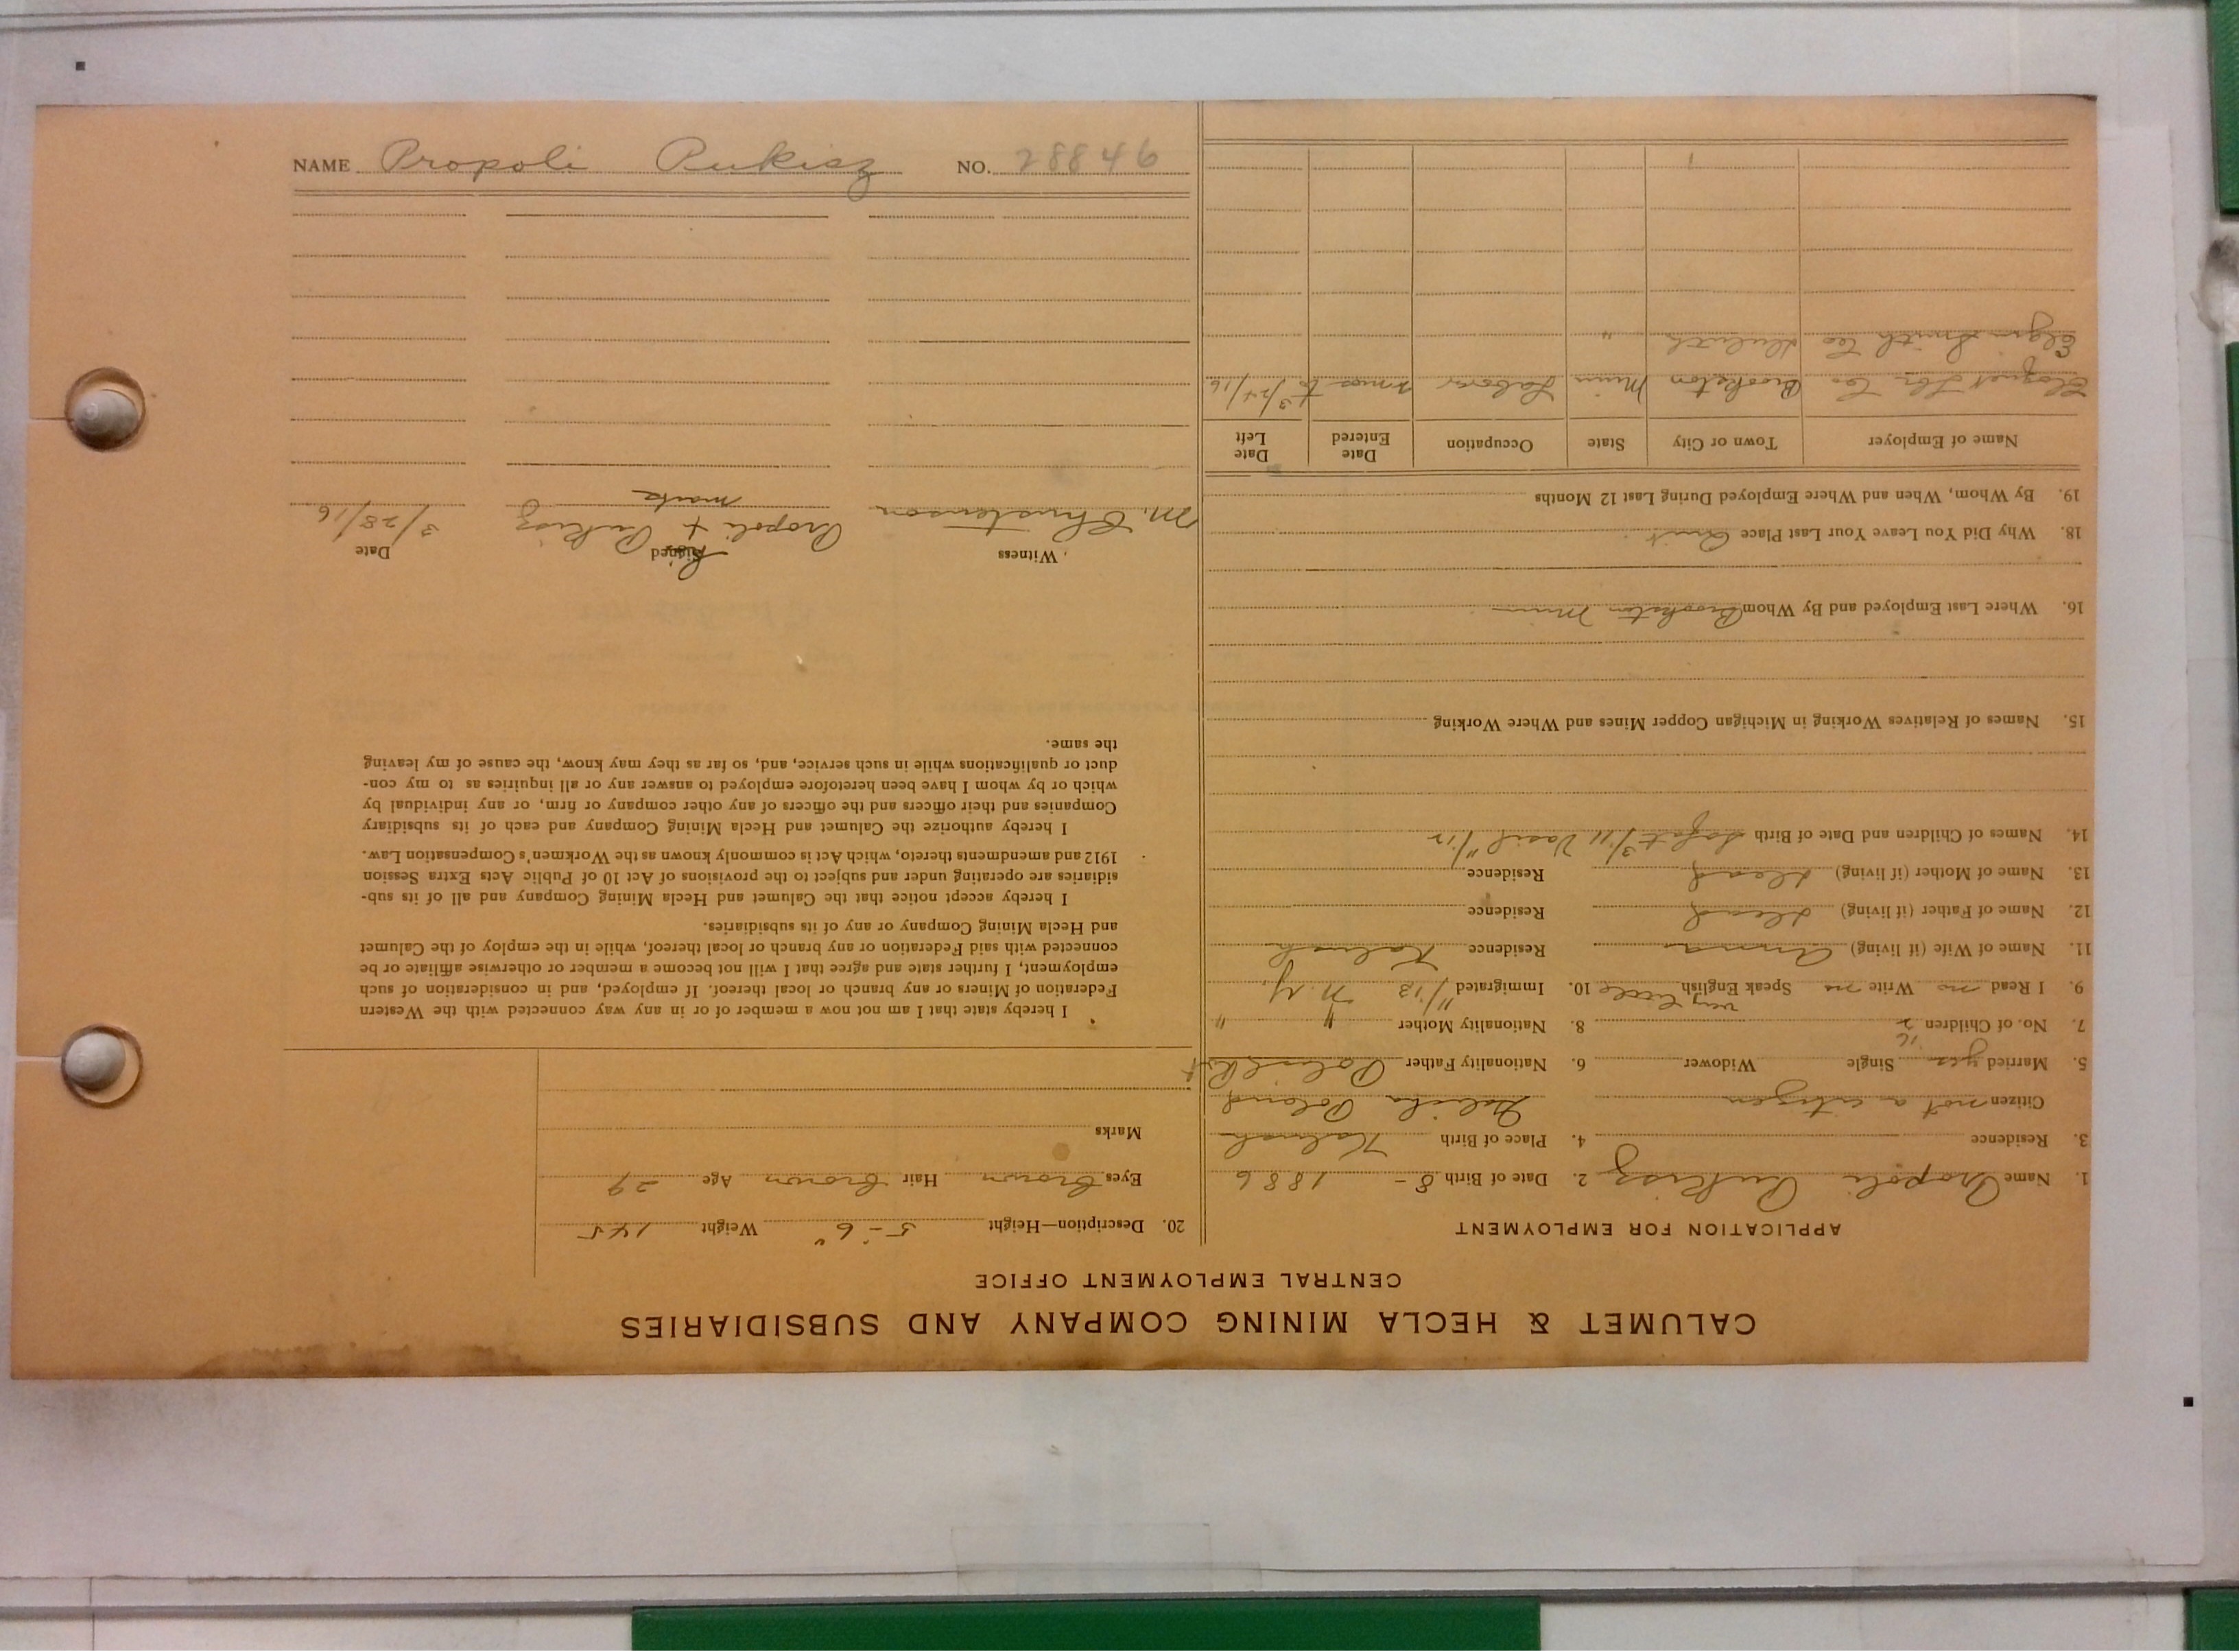 NAME Propoli Pukisz NO. 28846
CALUMET & HECLA MINING COMPANY AND SUBSIDIARIES
CENTRAL EMPLOYMENT OFFICE
APPLICATION FOR EMPLOYMENT
1. Name Propoli Pukisz 2. Date of Birth 8 - 1886
3. Residence 4. Place of Birth
Citizen not a citizen Poland
5. Married yes Single Widower 6. Nationality Father Polish
7. No. of Children 2 8. Nationality Mother " "
9. I Read no Write no Speak English very little 10. Immigrated 11/13 N.Y.
11. Name of Wife (if living) Anna Residence
12. Name of Father (if living) dead Residence
13. Name of Mother (if living) dead Residence
14. Names of Children and Date of Birth 3/11 Vasil 11/12
15. Names of Relatives Working in Michigan Copper Mines and Where Working
16. Where Last Employed and By Whom Brookston Minn
18. Why Did You Leave Your Last Place Quit
19. By Whom, When and Where Employed During Last 12 Months
Name of Employer Town or City State Occupation Date Entered Date Left
Cloquet Lbr Co Brookston Minn Labor mos to 3/24/16
Smith Co Duluth "
20. Description—Height 5-6" Weight 145
Eyes brown Hair brown Age 29
Marks
I hereby state that I am not now a member of or in any way connected with the Western
Federation of Miners or any branch or local thereof. If employed, and in consideration of such
employment, I further state and agree that I will not become a member or otherwise affiliate or be
connected with said Federation or any branch or local thereof, while in the employ of the Calumet
and Hecla Mining Company or any of its subsidiaries.
I hereby accept notice that the Calumet and Hecla Mining Company and all of its sub-
sidiaries are operating under and subject to the provisions of Act 10 of Public Acts Extra Session
1912 and amendments thereto, which Act is commonly known as the Workmen's Compensation Law.
I hereby authorize the Calumet and Hecla Mining Company and each of its subsidiary
Companies and their officers and the officers of any other company or firm, or any individual by
which or by whom I have been heretofore employed to answer any or all inquiries as to my con-
duct or qualifications while in such service, and, so far as they may know, the cause of my leaving
the same.
Witness Signed Date
M. Christenson Propoli + Pukisz 3/28/16
his
mark